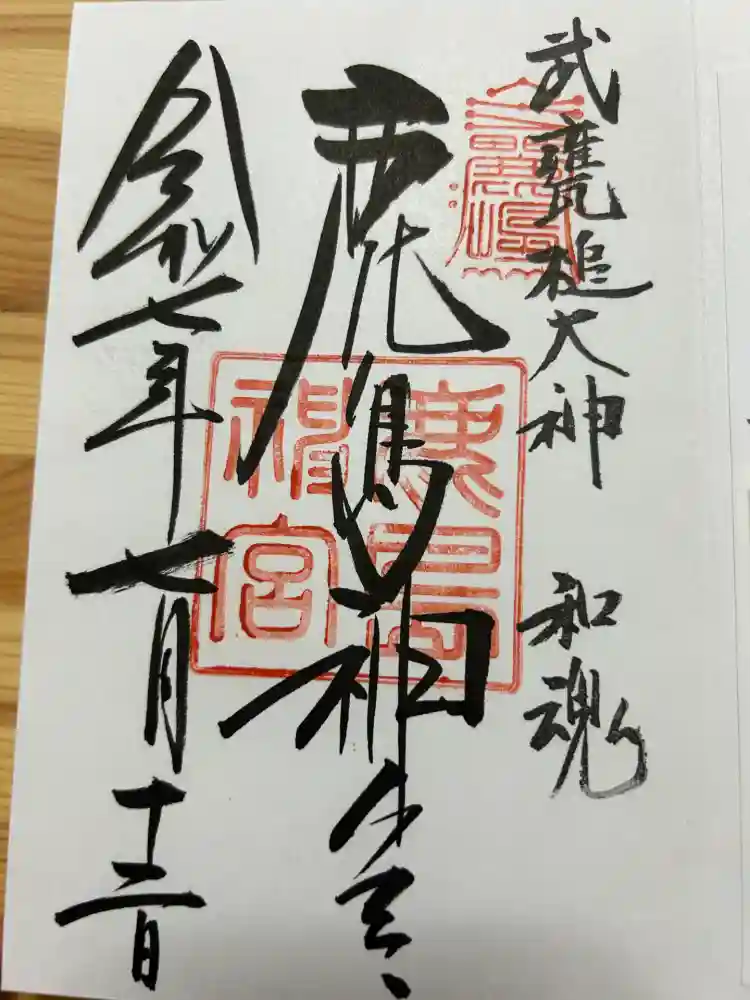 武甕槌大神 和魂
鹿島神宮
鹿島
神宮
令和七年七月十二日